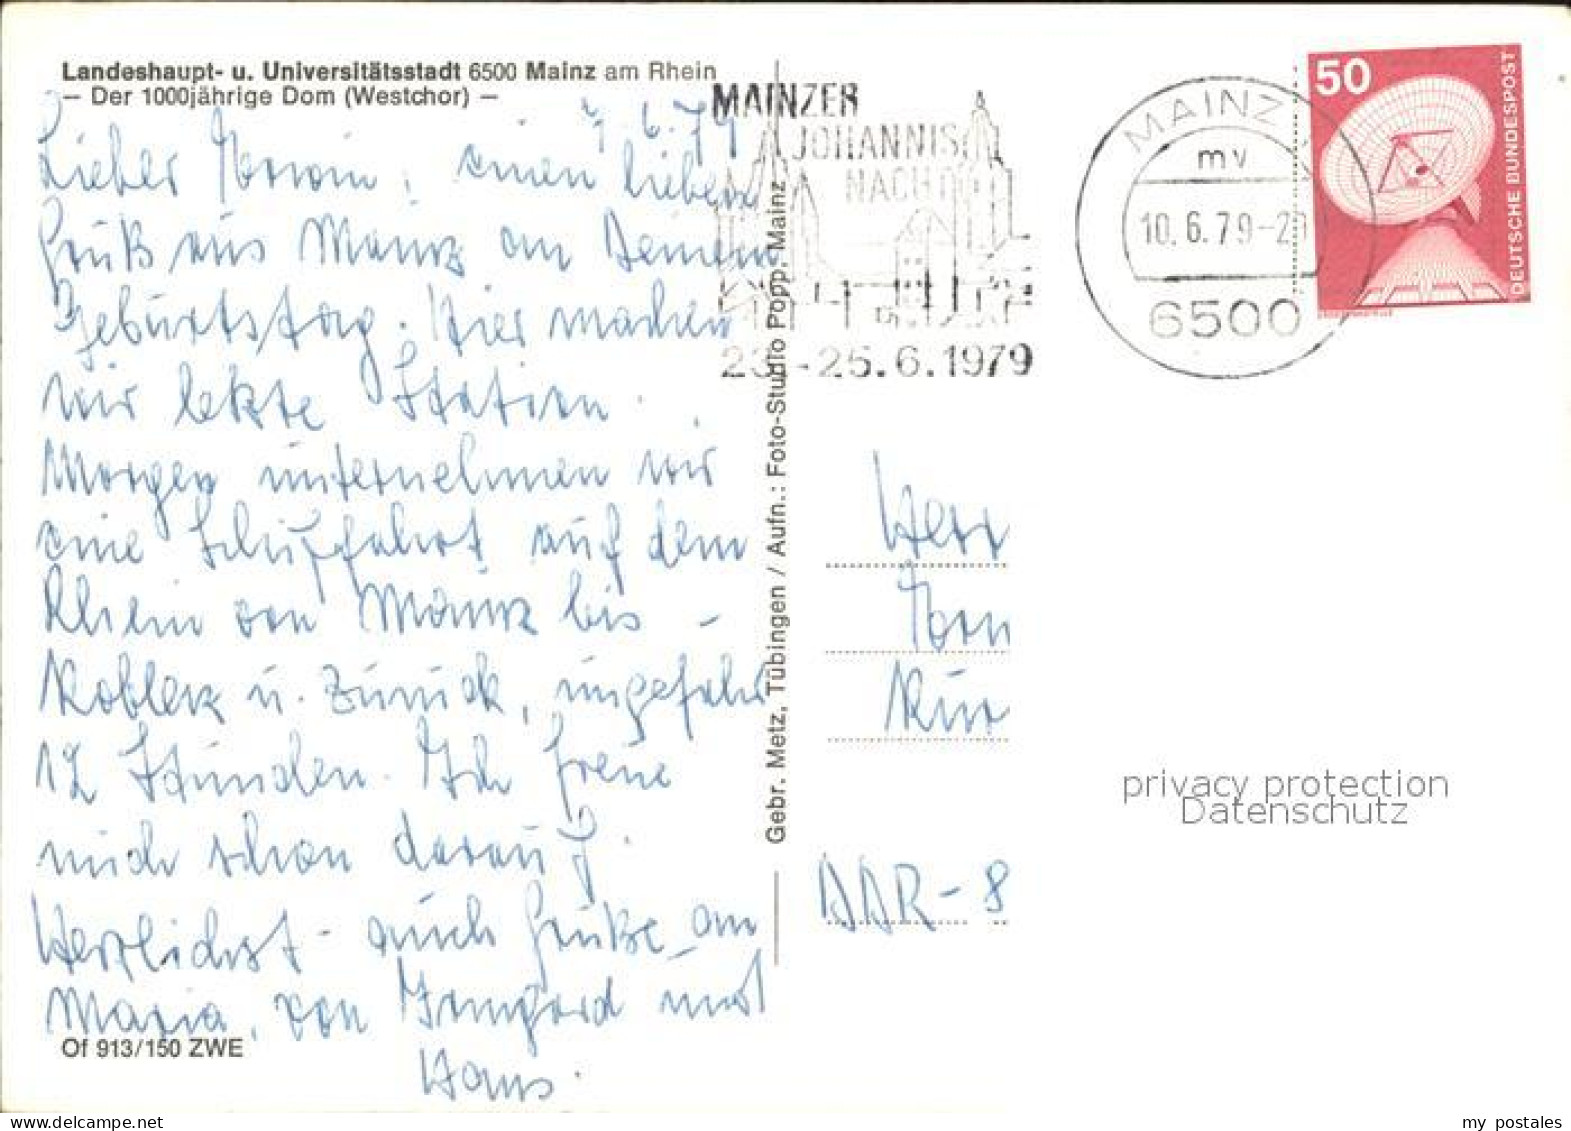 Landeshaupt- u. Universitätsstadt 6500 Mainz am Rhein
— Der 1000jährige Dom (Westchor) —
6.79
Lieber einen lieben
Gruß aus Mainz an Deinem
Geburtstag. Hier machen
wir letzte Station.
Morgen unternehmen wir
eine Schiffahrt auf dem
Rhein von Mainz bis –
Koblenz u. zurück, ungefähr
12 Stunden. Ich freue
mich schon darauf.
Herzlichst – auch Grüße an
Maria, von Irmgard und
Hans.
Of 913/150 ZWE
Gebr. Metz, Tübingen / Aufn.: Foto-Studio Popp, Mainz
MAINZER
JOHANNIS
NACHT
-25.6.1979
MAINZ
mv
10.6.79-20
6500
50
DEUTSCHE BUNDESPOST
Herr
DDR – 8
privacy protection
Datenschutz
my postales